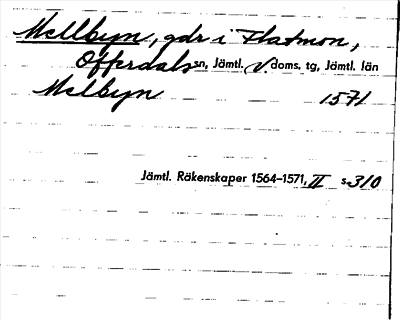 Mellbyn, gdr i Flatmon,
Offerdals sn, Jämtl. v. doms. tg, Jämtl. län
Melbyn 1571
Jämtl. Räkenskaper 1564–1571, II s. 310